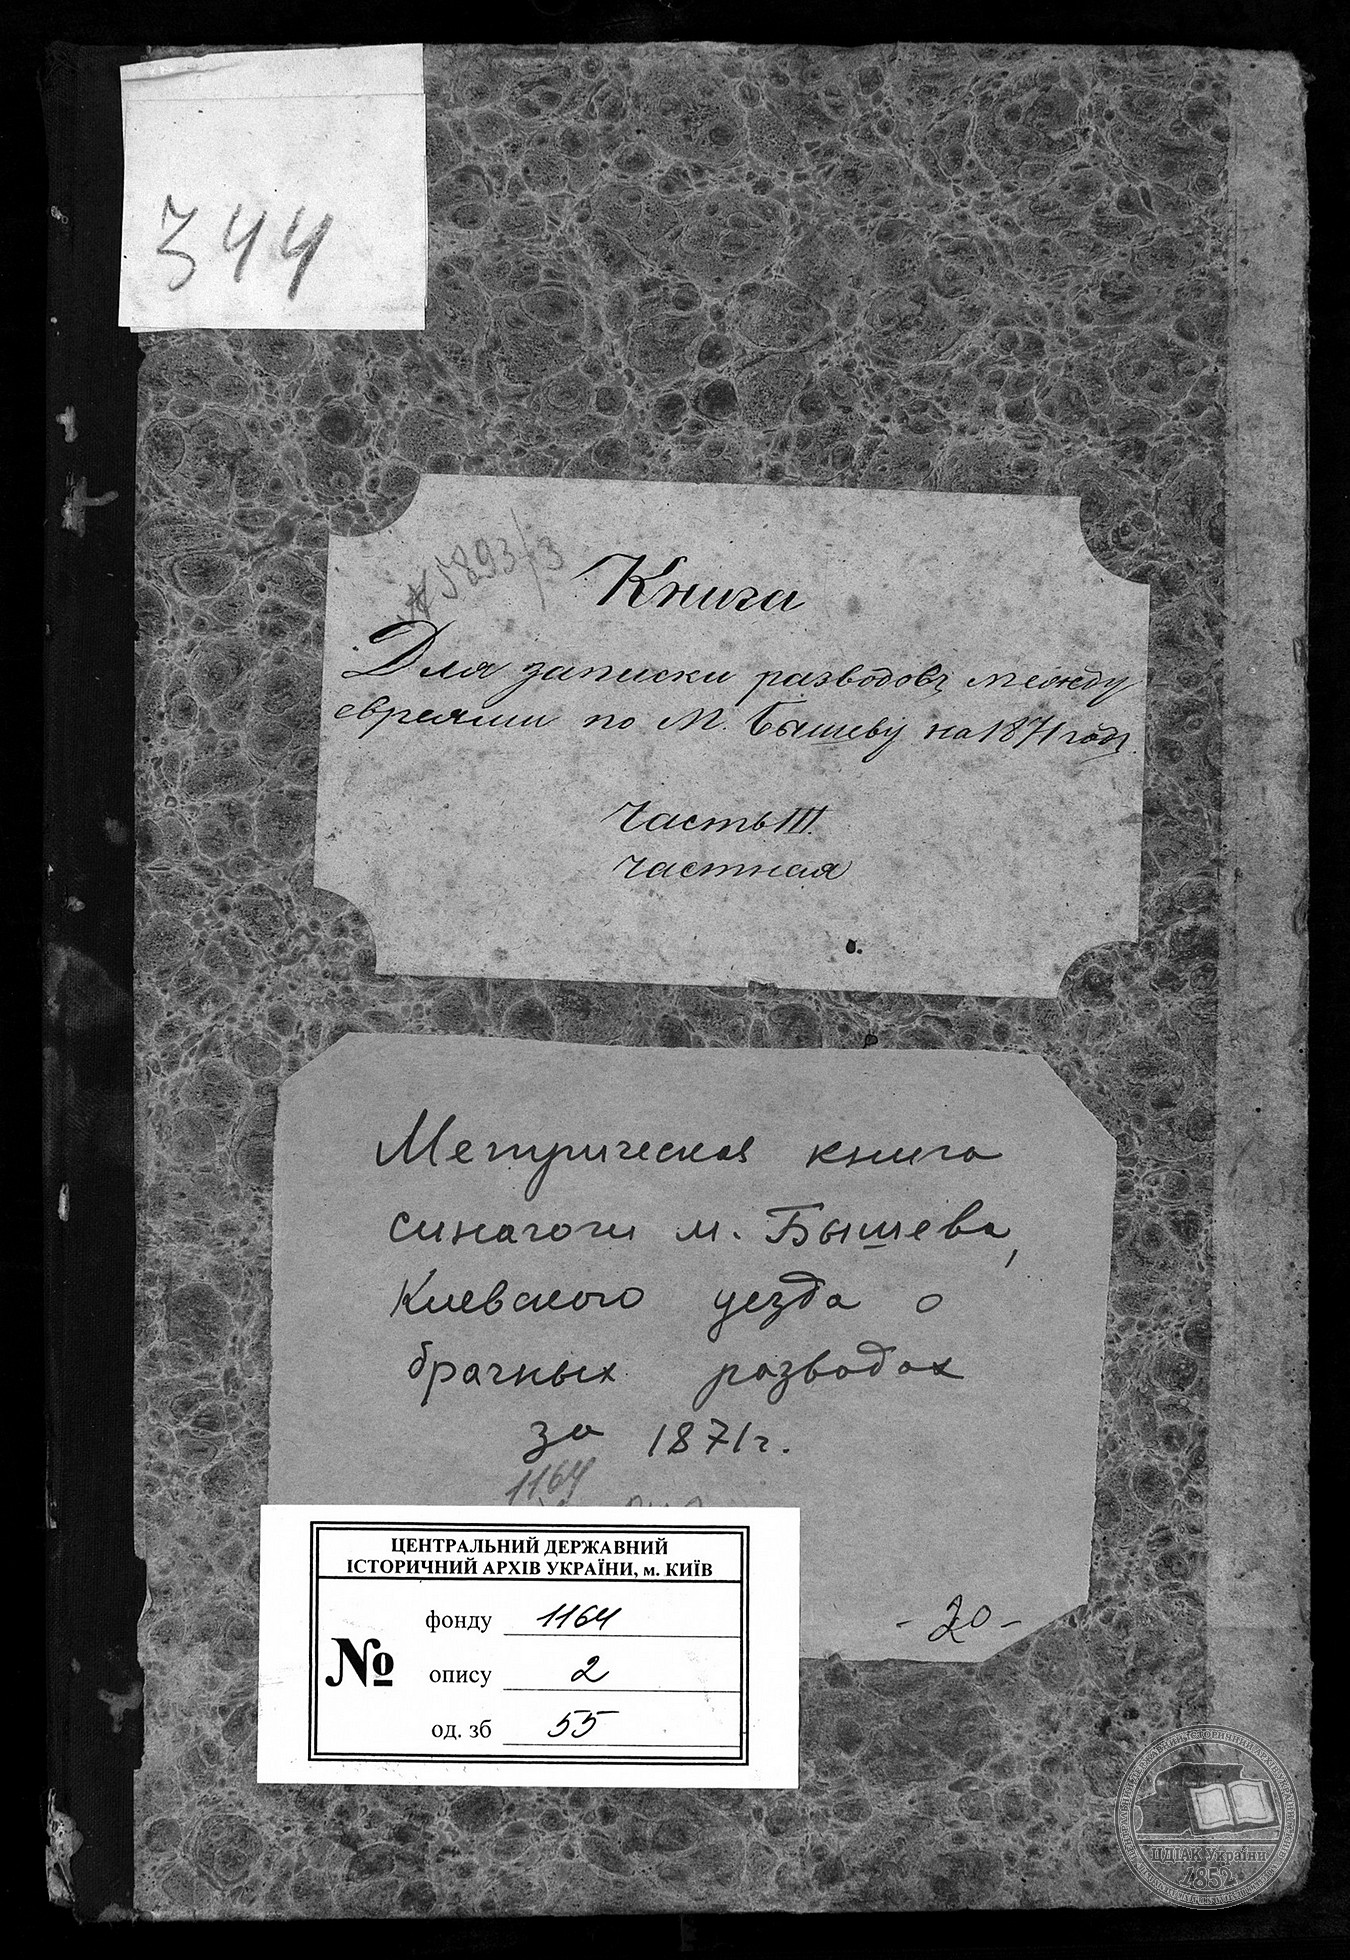 344
№ 5893/3
Книга
Для записки разводовъ между
евреями по М. Бышеву на 1871 годъ.
Часть III.
частная
Метрическая книга
синагоги м. Бышева,
Киевского уезда о
брачных разводах
за 1871г.
1164
- 20 -
ЦЕНТРАЛЬНИЙ ДЕРЖАВНИЙ
ІСТОРИЧНИЙ АРХІВ УКРАЇНИ, м. КИЇВ
№
фонду 1164
опису 2
од. зб 55
ЦДІАК України
1852